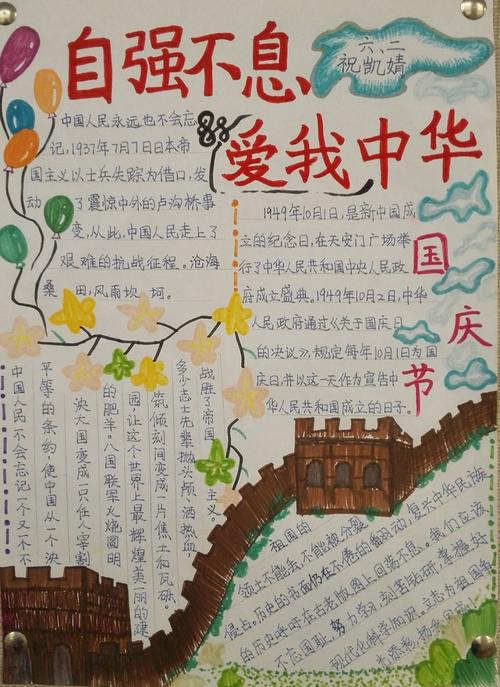 自强不息
六、二
祝凯婧
爱我中华
中国人民永远也不会忘
记,1937年7月7日日本帝
国主义以士兵失踪为借口,发
动了震惊中外的卢沟桥事
变,从此,中国人民走上了
艰难的抗战征程。沧海
桑田,风雨坎坷。
1949年10月1日,是新中国成
立的纪念日,在天安门广场举
行了中华人民共和国中央人民政
府成立盛典。1949年10月2日,中华
人民政府通过《关于国庆日
的决议》,规定每年10月1日为国
庆日,并以这一天作为宣告中
华人民共和国成立的日子。
国庆节
中国人民不会忘记一个又一个不
平等的条约,使中国从一个泱
泱大国变成一只任人宰割
的肥羊。八国联军火烧圆明
园,让这个世界上最辉煌美丽的建
筑倾刻间变成一片焦土和瓦砾。
多少志士先辈抛头颅,洒热血,
战胜了帝国主义。
祖国的
领土不能丢,不能被分裂
侵占。历史的书面仍在不倦的翻动,复兴中华民族
的历史呼吁在古老版图上回荡不息。我们应该
不忘国耻,努力学习,刻苦钻研,掌握好
现代化科学知识,立志为祖国争
光添彩,扬